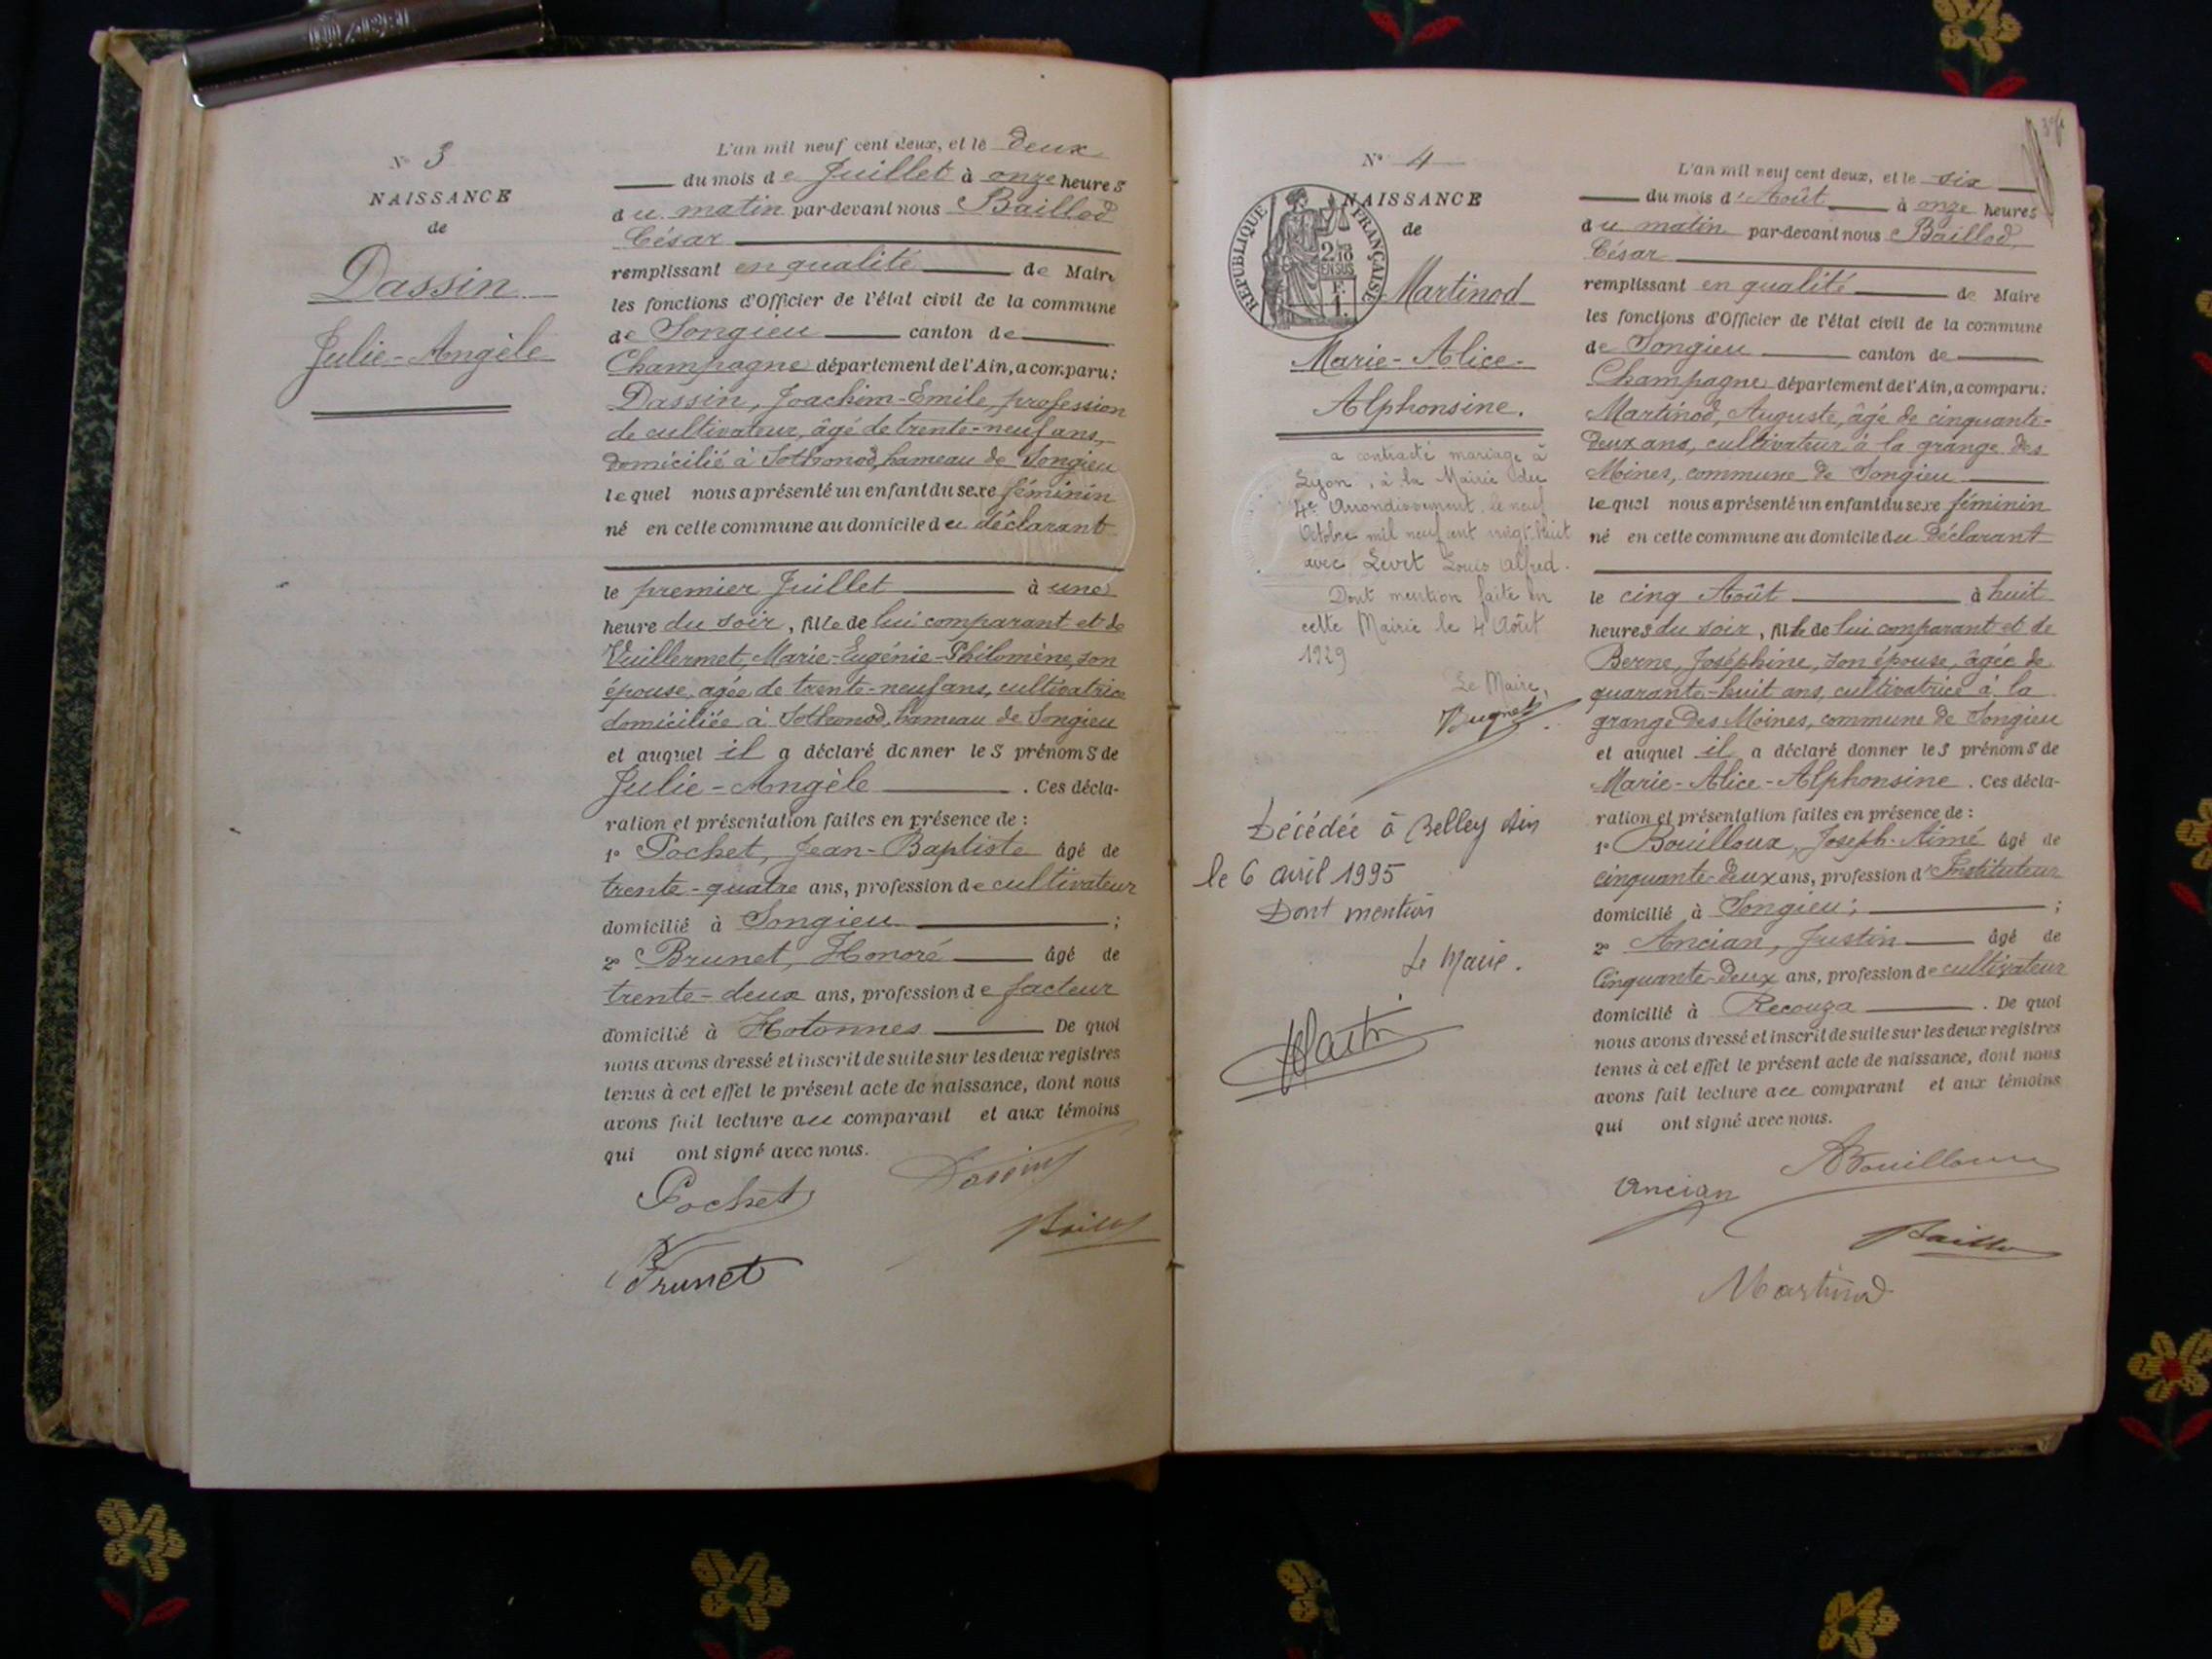 N° 3
NAISSANCE
de
Dassin
Julie-Angèle
L'an mil neuf cent deux, et le deux
du mois de Juillet à onze heures
du matin par-devant nous Baillod
César
remplissant en qualité de Maire
les fonctions d'Officier de l'état civil de la commune
de Songieu canton de
Champagne département de l'Ain, a comparu:
Dassin, Joachim-Emile, profession
de cultivateur, âgé de trente-neuf ans,
domicilié à Sothonod, hameau de Songieu
lequel nous a présenté un enfant du sexe féminin
né en cette commune au domicile du déclarant
le premier Juillet à une
heure du soir, fille de lui comparant et de
Vuillermet, Marie-Eugénie-Philomène, son
épouse, agée de trente-neuf ans, cultivatrice
domiciliée à Sothonod, hameau de Songieu
et auquel il a déclaré donner les prénoms de
Julie-Angèle. Ces décla-
ration et présentation faites en présence de :
1° Pochet, Jean-Baptiste âgé de
trente-quatre ans, profession de cultivateur
domicilié à Songieu ;
2° Brunet, Honoré âgé de
trente-deux ans, profession de facteur
domicilié à Hotonnes De quoi
nous avons dressé et inscrit de suite sur les deux registres
tenus à cet effet le présent acte de naissance, dont nous
avons fait lecture au comparant et aux témoins
qui ont signé avec nous.
Pochet Dassin
Brunet
N° 4
NAISSANCE
de
RÉPUBLIQUE FRANÇAISE
2/10
EN SUS
F.
1.
Martinod
Marie-Alice-
Alphonsine.
a contracté mariage à
Lyon, à la Mairie du
4e Arrondissement, le neuf
Octobre mil neuf cent vingt-huit
avec Levet Louis Alfred.
Dont mention faite en
cette Mairie le 4 Août
1929
Le Maire,
Décédée à Belley Ain
le 6 avril 1995
Dont mention
Le Maire.
L'an mil neuf cent deux, et le six
du mois d'Août à onze heures
du matin par-devant nous Baillod,
César
remplissant en qualité de Maire
les fonctions d'Officier de l'état civil de la commune
de Songieu canton de
Champagne département de l'Ain, a comparu:
Martinod, Auguste, âgé de cinquante-
deux ans, cultivateur à la grange des
Moines, commune de Songieu
lequel nous a présenté un enfant du sexe féminin
né en cette commune au domicile du déclarant
le cinq Août à huit
heures du soir, fille de lui comparant et de
Berne, Joséphine, son épouse, âgée de
quarante-huit ans, cultivatrice à la
grange des Moines, commune de Songieu
et auquel il a déclaré donner les prénoms de
Marie-Alice-Alphonsine. Ces décla-
ration et présentation faites en présence de :
1° Bouilloux, Joseph-Aimé âgé de
cinquante-deux ans, profession d'Instituteur
domicilié à Songieu; ;
2° Ancian, Justin âgé de
Cinquante-deux ans, profession de cultivateur
domicilié à Recouza. De quoi
nous avons dressé et inscrit de suite sur les deux registres
tenus à cet effet le présent acte de naissance, dont nous
avons fait lecture au comparant et aux témoins
qui ont signé avec nous.
Ancian
Martinod